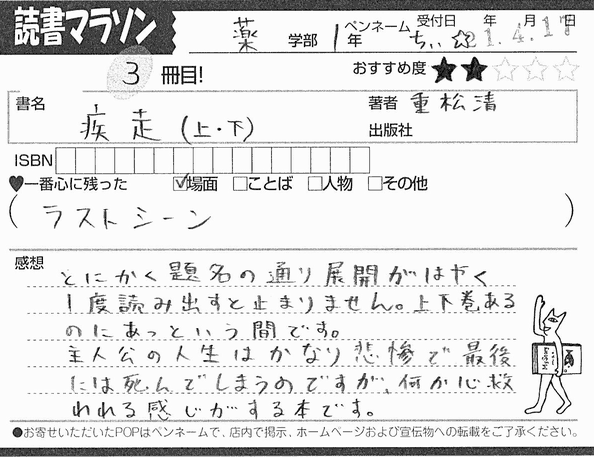 読書マラソン
薬 学部 1年 ペンネーム ちぃ☆ 受付日 21年4月17日
3 冊目! おすすめ度 ★★☆☆☆
書名 疾走(上・下) 著者 重松清
出版社
ISBN
♥一番心に残った ☑場面 □ことば □人物 □その他
(ラストシーン)
感想
とにかく題名の通り展開がはやく
1度読み出すと止まりません。上下巻ある
のにあっという間です。
主人公の人生はかなり悲惨で最後
には死んでしまうのですが、何か心救
われる感じがする本です。
●お寄せいただいたPOPはペンネームで、店内で掲示、ホームページおよび宣伝物への転載をご了承ください。